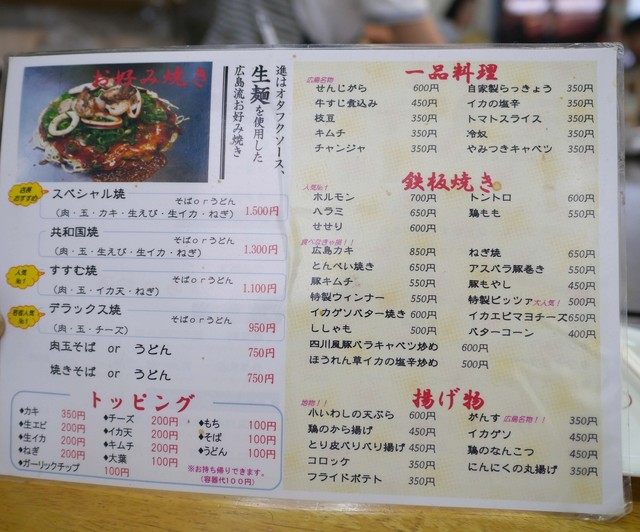 お好み焼き
進はオタフクソース、
生麺を使用した
広島流お好み焼き
店長おすすめ
スペシャル焼
そばorうどん
(肉・玉・カキ・生えび・生イカ・ねぎ) 1.500円
共和国焼
そばorうどん
(肉・玉・生えび・生イカ・ねぎ) 1.300円
人気No!
すすむ焼
そばorうどん
(肉・玉・イカ天・ねぎ) 1.100円
デラックス焼
そばorうどん
(肉・玉・チーズ) 950円
肉玉そば or うどん 750円
焼きそば or うどん 750円
トッピング
♦カキ 350円
♦生エビ 200円
♦生イカ 200円
♦ねぎ 200円
♦ガーリックチップ 100円
♦チーズ 200円
♦イカ天 200円
♦キムチ 200円
♦大葉 100円
♦もち 100円
♦そば 100円
♦うどん 100円
※お持ち帰りできます。
(容器代100円)
一品料理
広島名物
せんじがら 600円
牛すじ煮込み 450円
枝豆 350円
キムチ 350円
チャンジャ 350円
自家製らっきょう 350円
イカの塩辛 350円
トマトスライス 350円
冷奴 350円
やみつきキャベツ 350円
鉄板焼き
人気No!
ホルモン 700円
ハラミ 650円
せせり 600円
トントロ 600円
鶏もも 550円
食べなきゃ損!!
広島カキ 850円
とんぺい焼き 650円
豚キムチ 550円
特製ウィンナー 550円
イカゲソバター焼き 600円
ししゃも 500円
四川風豚バラキャベツ炒め 600円
ほうれん草イカの塩辛炒め 500円
ねぎ焼 650円
アスパラ豚巻き 550円
豚もやし 450円
特製ピッツァ 大人気! 500円
イカエビマヨチーズ 650円
バターコーン 400円
揚げ物
小いわしの天ぷら 600円
鶏のから揚げ 450円
とり皮パリパリ揚げ 450円
コロッケ 350円
フライドポテト 350円
がんす 広島名物!! 350円
イカゲソ 450円
鶏のなんこつ 450円
にんにくの丸揚げ 350円